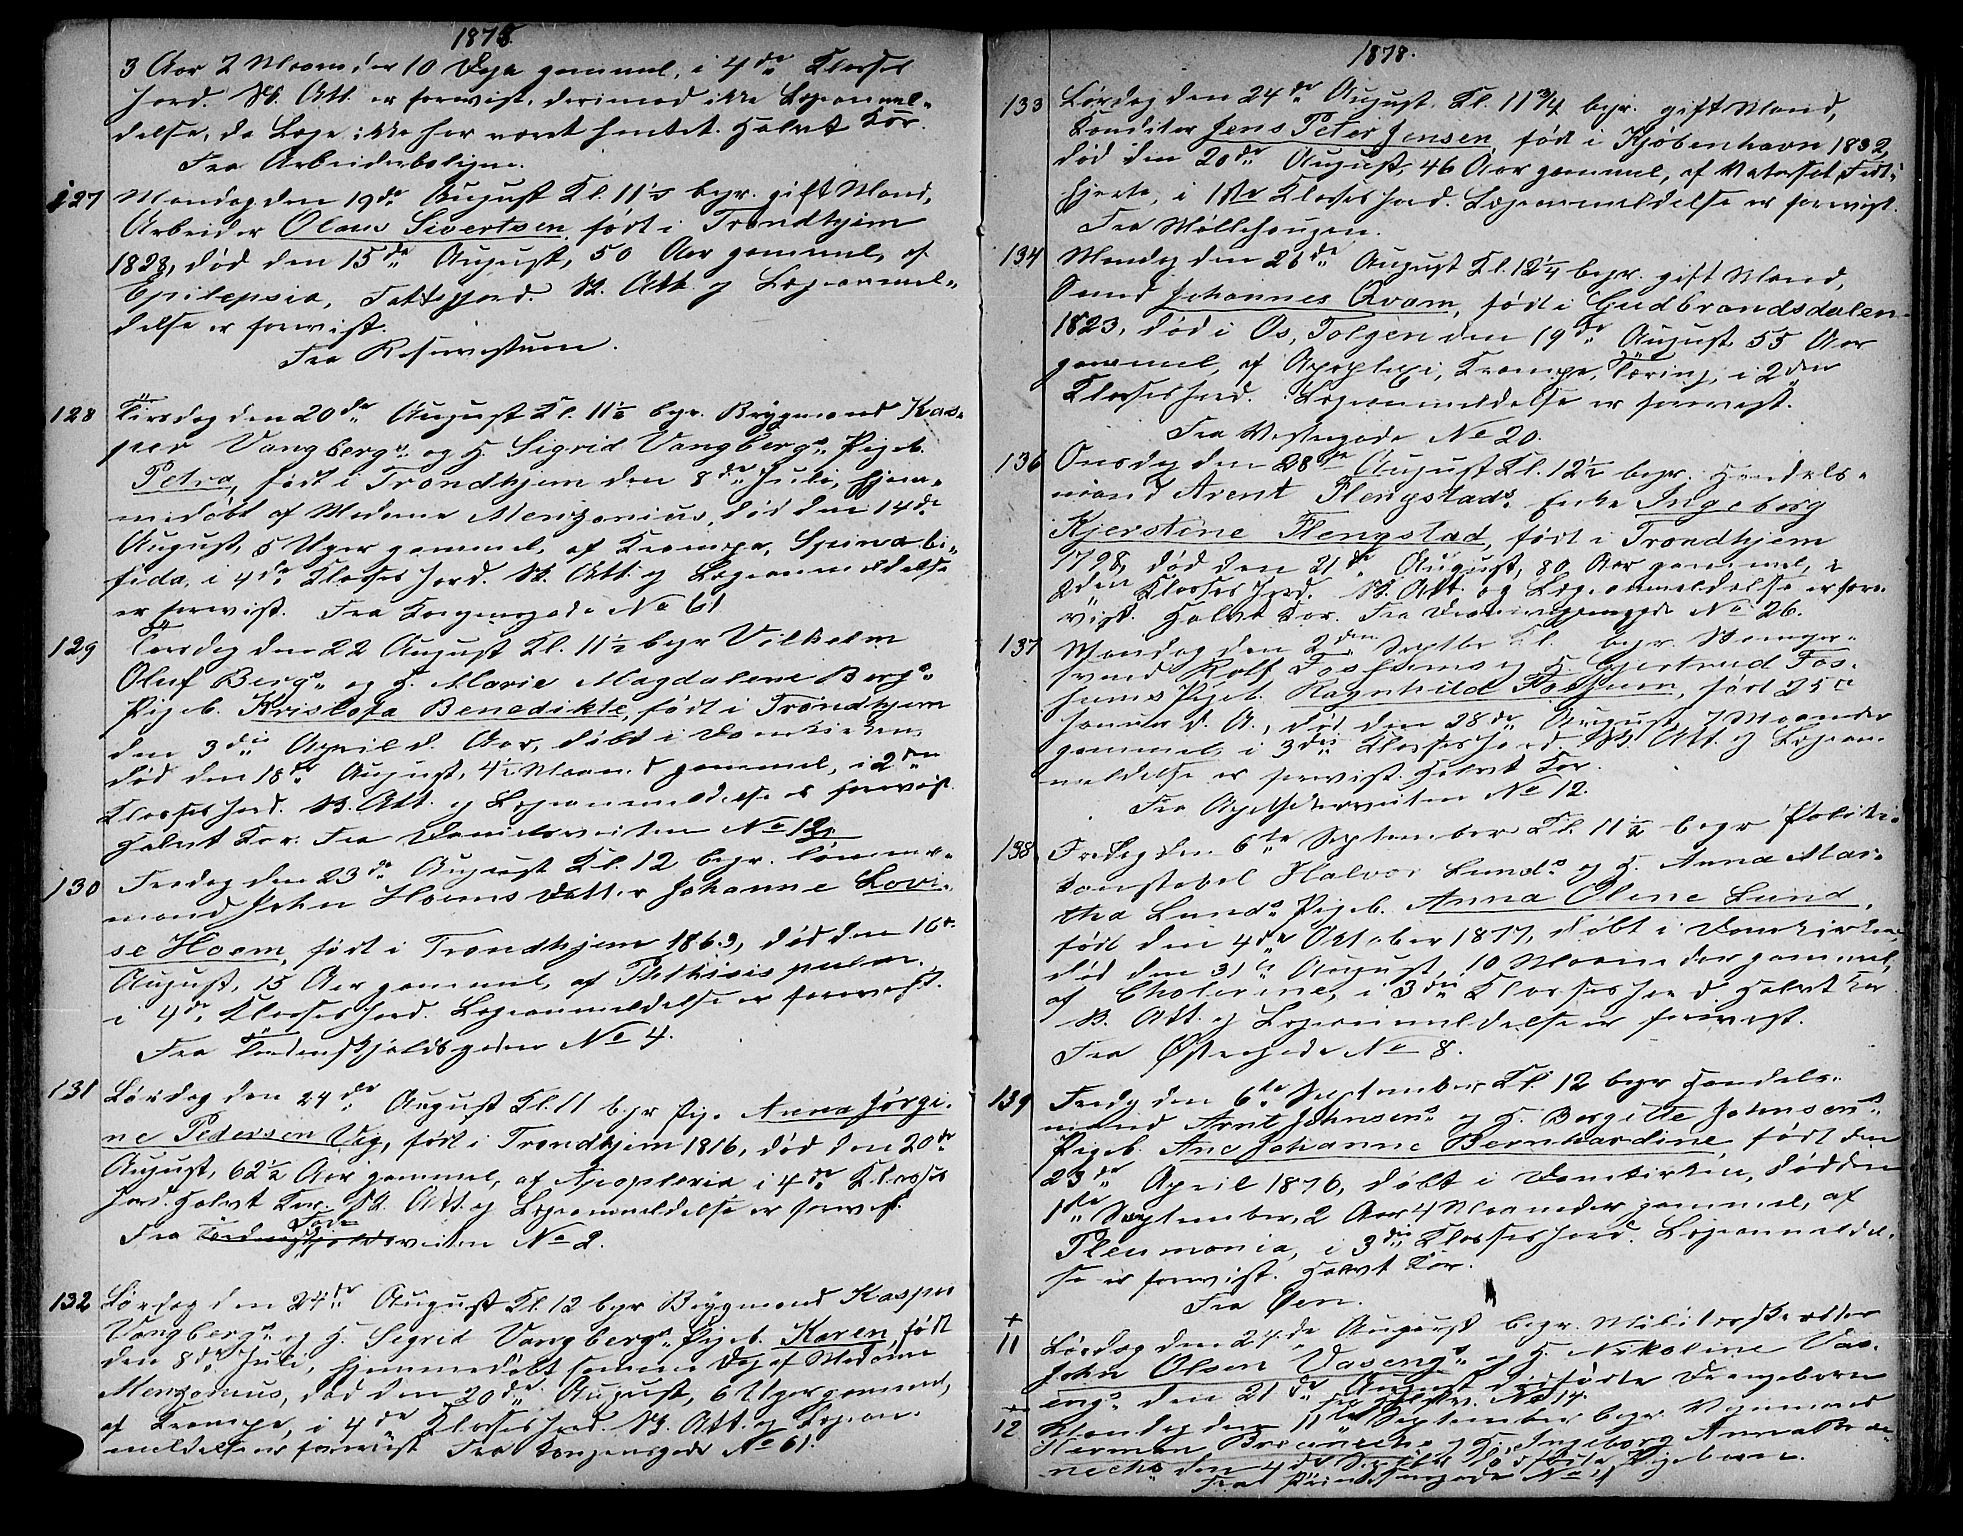 1878.
3 Aar 2 Maaneder 10 Dage gammel, i 4de Klasses
Jord. Sk. Att. er forevist, derimod ikke Lægeanmel-
delse, da Læge ikke har været hentet. Halvt Kor.
Fra Arbeiderboligne.
127 Mandag den 19de August Kl. 11 1/2 begr. gift Mand,
Arbeider Olaus Sivertsen, født i Trondhjem
1828, død den 15de August, 50 Aar gammel, af
Epilepsia, Fattigjord. Sk. Att. og Lægeanmel-
delse er forevist.
Fra
128 Tirsdag den 20de August Kl. 11 1/2 begr. Brygmand Kas-
per Vangbergs og H. Sigrid Vangbergs Pigeb.
Petra, født i Trondhjem den 8de Juli, hjem-
medøbt af Madame Menzonius, død den 14de
August, 5 Uger gammel, af Krampe, Spina bi-
fida, i 4de Klasses Jord. Sk. Att. og Lægeanmeldelse
er forevist. Fra Kongensgade No 61
129 Torsdag den 22 August Kl. 11 1/2 begr Vilhelm
Oluf Bergs og H. Marie Magdalene Bergs
Pigeb. Kristofa Benedikte, født i Trondhjem
den 3die April d. Aar, døbt i Domkirken,
død den 18de August, 4 1/2 Maaned gammel, i 2den
Klasses Jord. Sk. Att. og Lægeanmeldelse er forevist.
Halvt Kor. Fra Danielsveiten No 12
130 Fredag den 23de August Kl. 12 begr.
mand John Hoems Datter Johanne Lovi-
se Hoem, født i Trondhjem 1863, død den 16de
August, 15 Aar gammel, af Phthisis pulm.
i 4de Klasses Jord. Lægeanmeldelse er forevist.
Fra Tordenskjoldsgaden No 4.
131 Lørdag den 24de August Kl. 11 begr Pige Anna Jørgi-
ne Pedersen Vig, født i Trondhjem 1816, død den 20de
August, 62 1/2 Aar gammel, af Apoplexia i 4de Klasses
Jord. Halvt Kor. Sk. Att. og Lægeanmeldelse er forevist.
Fra Tordenskjoldsveiten No 2.
132 Lørdag den 24de August Kl. 12 begr Brygmand Kasper
Vangbergs og H. Sigrid Vangbergs Pigeb. Karen, født
den 8de Juli, hjemmedøbt samme Dag af Madame
Menzonius, død den 20de August, 6 Uger gammel,
af Krampe, i 4de Klasses Jord. Sk. Att. og Lægean-
meldelse er forevist Fra Kongensgade No 61.
1878.
133 Lørdag den 24de August Kl. 11 3/4 begr. gift Mand,
Konditor Jens Peter Jensen, født i Kjøbenhavn 1832,
død den 20de August, 46 Aar gammel, af Vatersot, Fedt-
hjerte, i 1ste Klasses Jord. Lægeanmeldelse er forevist.
Fra Møllehaugen.
134 Mandag den 26de August Kl. 12 1/4 begr. gift Mand,
Johannes Qvam, født i Gudbrandsdalen
1823, død i Os, Tolgen den 19de August 55 Aar
gammel, af Apoplexi, Krampe, Tæring, i 2den
Klasses Jord. Lægeanmeldelse er forevist.
Fra Vestregade No 20.
136 Onsdag den 28de August Kl. 12 1/2 begr. Handels-
mand Arent Flengstads Enke Ingeborg
Kjerstine Flengstad, født i Trondhjem
1798, død den 21de August, 80 Aar gammel, i
2den Klasses Jord. Sk. Att. og Lægeanmeldelse er fore-
vist. Halvt Kor. Fra Dronningensgade No 26.
137 Mandag den 2den Septbr Kl. begr.
svend Rolf Foshums og H. Gjertrud Fos-
hums Pigeb. Ragnhild Foshum, født 25de
Januar d. A., død den 28de August, 7 Maaneder
gammel, i 3die Klasses Jord. Sk. Att. og Lægean-
meldelse er forevist. Halvt Kor.
Fra Apothekerveiten No 12.
138 Fredag den 6te September Kl. 11 1/2 begr Politi-
konstabel Halvor Lunds og H. Anna Mar-
tha Lunds Pigeb. Anna Oline Lund,
født den 4de Oktober 1877, døbt i Domkirken,
død den 31te August, 10 Maaneder gammel,
af Cholerine, i 3die Klasses Jord. Halvt Kor
Sk. Att. og Lægeanmeldelse er forevist.
Fra Østregade No 8.
139 Fredag den 6te September Kl. 12 begr Handels-
mand Arnt Johnsens og H. Bergitte Johnsens
Pigeb. Ane Johanne Bernhardine, født den
23de April 1876, døbt i Domkirken, død den
1ste September, 2 Aar 4 Maaneder gammel, af
Pleumonia, i 3die Klasses Jord. Lægeanmeldel-
se er forevist. Halvt Kor.
Fra Øen.
+
11 Lørdag den 24de August begr. Militærskrædder
John Olsen Vasengs og H. Nikoline Vas-
engs den 21de August dødfødte Drengebarn
No 14.
+
12 Mandag den 11te September begr. Vognmand
Herman og H. Ingeborg Anna
den 4de Septbr dødfødte Pigebarn.
Fra Prindsensgade No